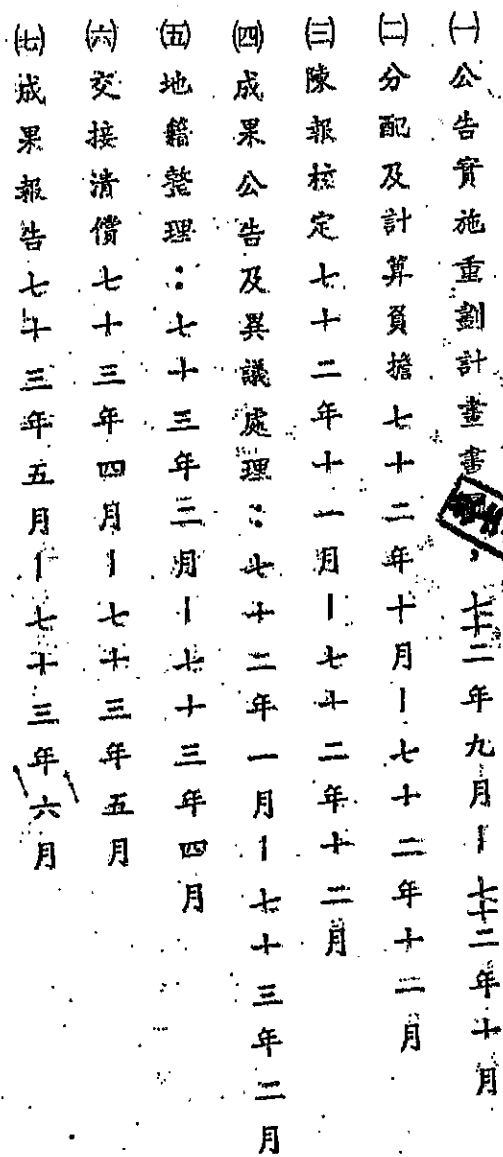 ㈠公告實施重劃計畫書圖,七十二年九月-七十二年十月
㈡分配及計算負擔七十二年十月-七十二年十二月
㈢陳報核定七十二年十一月-七十二年十二月
㈣成果公告及異議處理:七十二年一月-七十三年二月
㈤地籍整理:七十三年三月-七十三年四月
㈥交接清償七十三年四月-七十三年五月
㈦成果報告七十三年五月-七十三年六月